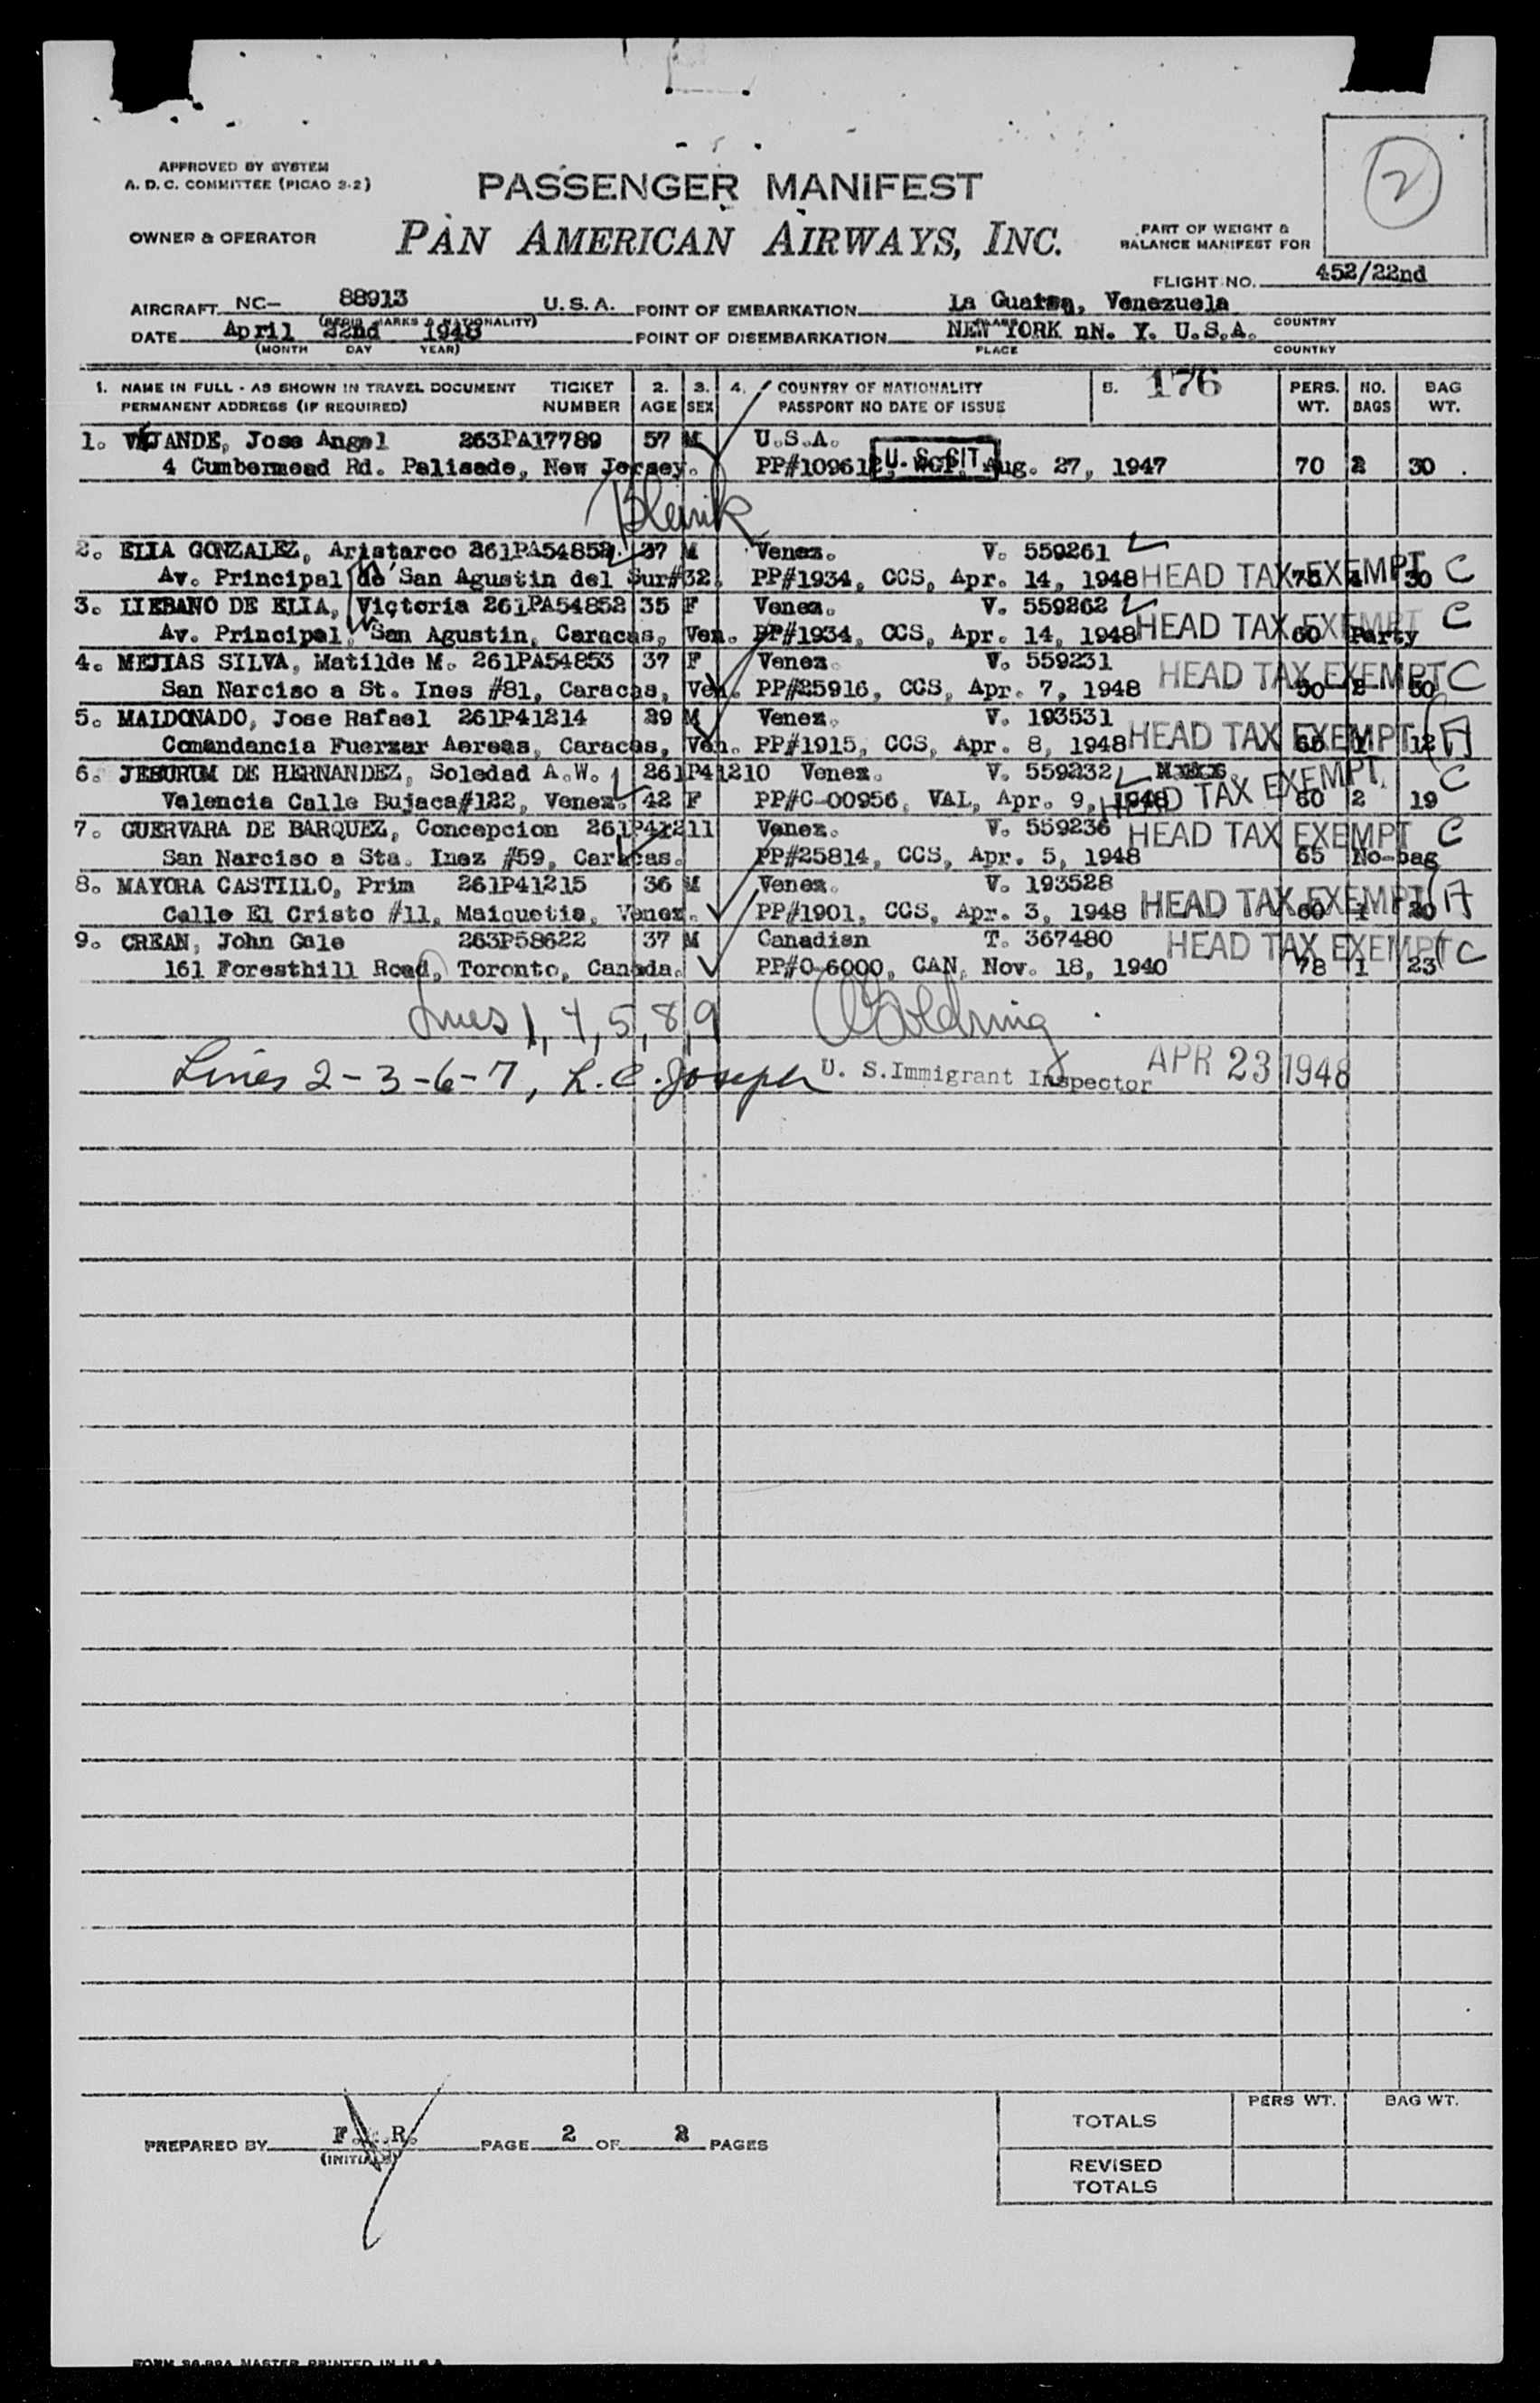 2
APPROVED BY SYSTEM
A. D. C. COMMITTEE (PICAO 3-2)
PASSENGER MANIFEST
OWNER & OPERATOR
PAN AMERICAN AIRWAYS, INC.
PART OF WEIGHT &
BALANCE MANIFEST FOR
FLIGHT NO. 452/22nd
AIRCRAFT NC- 88913 U.S.A. POINT OF EMBARKATION La Guaira, Venezuela
(REGIS. MARKS & NATIONALITY) PLACE COUNTRY
DATE April 22nd 1948 POINT OF DISEMBARKATION NEW YORK nN. Y. U.S.A.
(MONTH DAY YEAR) PLACE COUNTRY
1. NAME IN FULL - AS SHOWN IN TRAVEL DOCUMENT TICKET 2. 3. 4. COUNTRY OF NATIONALITY 5. 176 PERS. NO. BAG
PERMANENT ADDRESS (IF REQUIRED) NUMBER AGE SEX PASSPORT NO DATE OF ISSUE WT. BAGS WT.
1. VEJANDE, Jose Angel 263PA17789 57 M U.S.A.
4 Cumbermead Rd. Palisade, New Jersey. PP#109612, U. S. CIT. Aug. 27, 1947 70 2 30
2. ELIA GONZALEZ, Aristarco 261PA54852 37 M Venez. V. 559261
Av. Principal de San Agustin del Sur#32. PP#1934, CCS, Apr. 14, 1948 HEAD TAX EXEMPT 75 30 C
3. LIEBANO DE ELIA, Victoria 261PA54852 35 F Venez. V. 559262
Av. Principal, San Agustin, Caracas, Ven. PP#1934, CCS, Apr. 14, 1948 HEAD TAX EXEMPT 60 Party C
4. MEJIAS SILVA, Matilde M. 261PA54853 37 F Venez. V. 559231
San Narciso a St. Ines #81, Caracas, Ven. PP#25916, CCS, Apr. 7, 1948 HEAD TAX EXEMPT 50 2 50 C
5. MALDONADO, Jose Rafael 261P41214 29 M Venez. V. 193531
Comandancia Fuerzar Aereas, Caracas, Ven. PP#1915, CCS, Apr. 8, 1948 HEAD TAX EXEMPT 65 1 12 A
6. JESURUM DE HERNANDEZ, Soledad A.W. 261P41210 Venez. V. 559232
Valencia Calle Bujaca#122, Venez. 42 F PP#C-00956, VAL, Apr. 9, 1948 HEAD TAX EXEMPT 60 2 19 C
7. GUERVARA DE BARQUEZ, Concepcion 261P41211 Venez. V. 559236
San Narciso a Sta. Inez #59, Caracas. PP#25814, CCS, Apr. 5, 1948 HEAD TAX EXEMPT 65 No-bag C
8. MAYORA CASTILLO, Prim 261P41215 36 M Venez. V. 193528
Calle El Cristo #11, Maiquetia, Venez. PP#1901, CCS, Apr. 3, 1948 HEAD TAX EXEMPT 60 1 20 A
9. CREAN, John Gale 263P58622 37 M Canadian T. 367480
161 Foresthill Road, Toronto, Canada. PP#0-6000, CAN, Nov. 18, 1940 HEAD TAX EXEMPT 78 1 23 C
Lines 1, 4, 5, 8, 9
Lines 2-3-6-7, L. C. Joseph U. S. Immigrant Inspector APR 23 1948
PREPARED BY F. R. PAGE 2 OF 2 PAGES
(INITIALS)
PERS WT. BAG WT.
TOTALS
REVISED
TOTALS